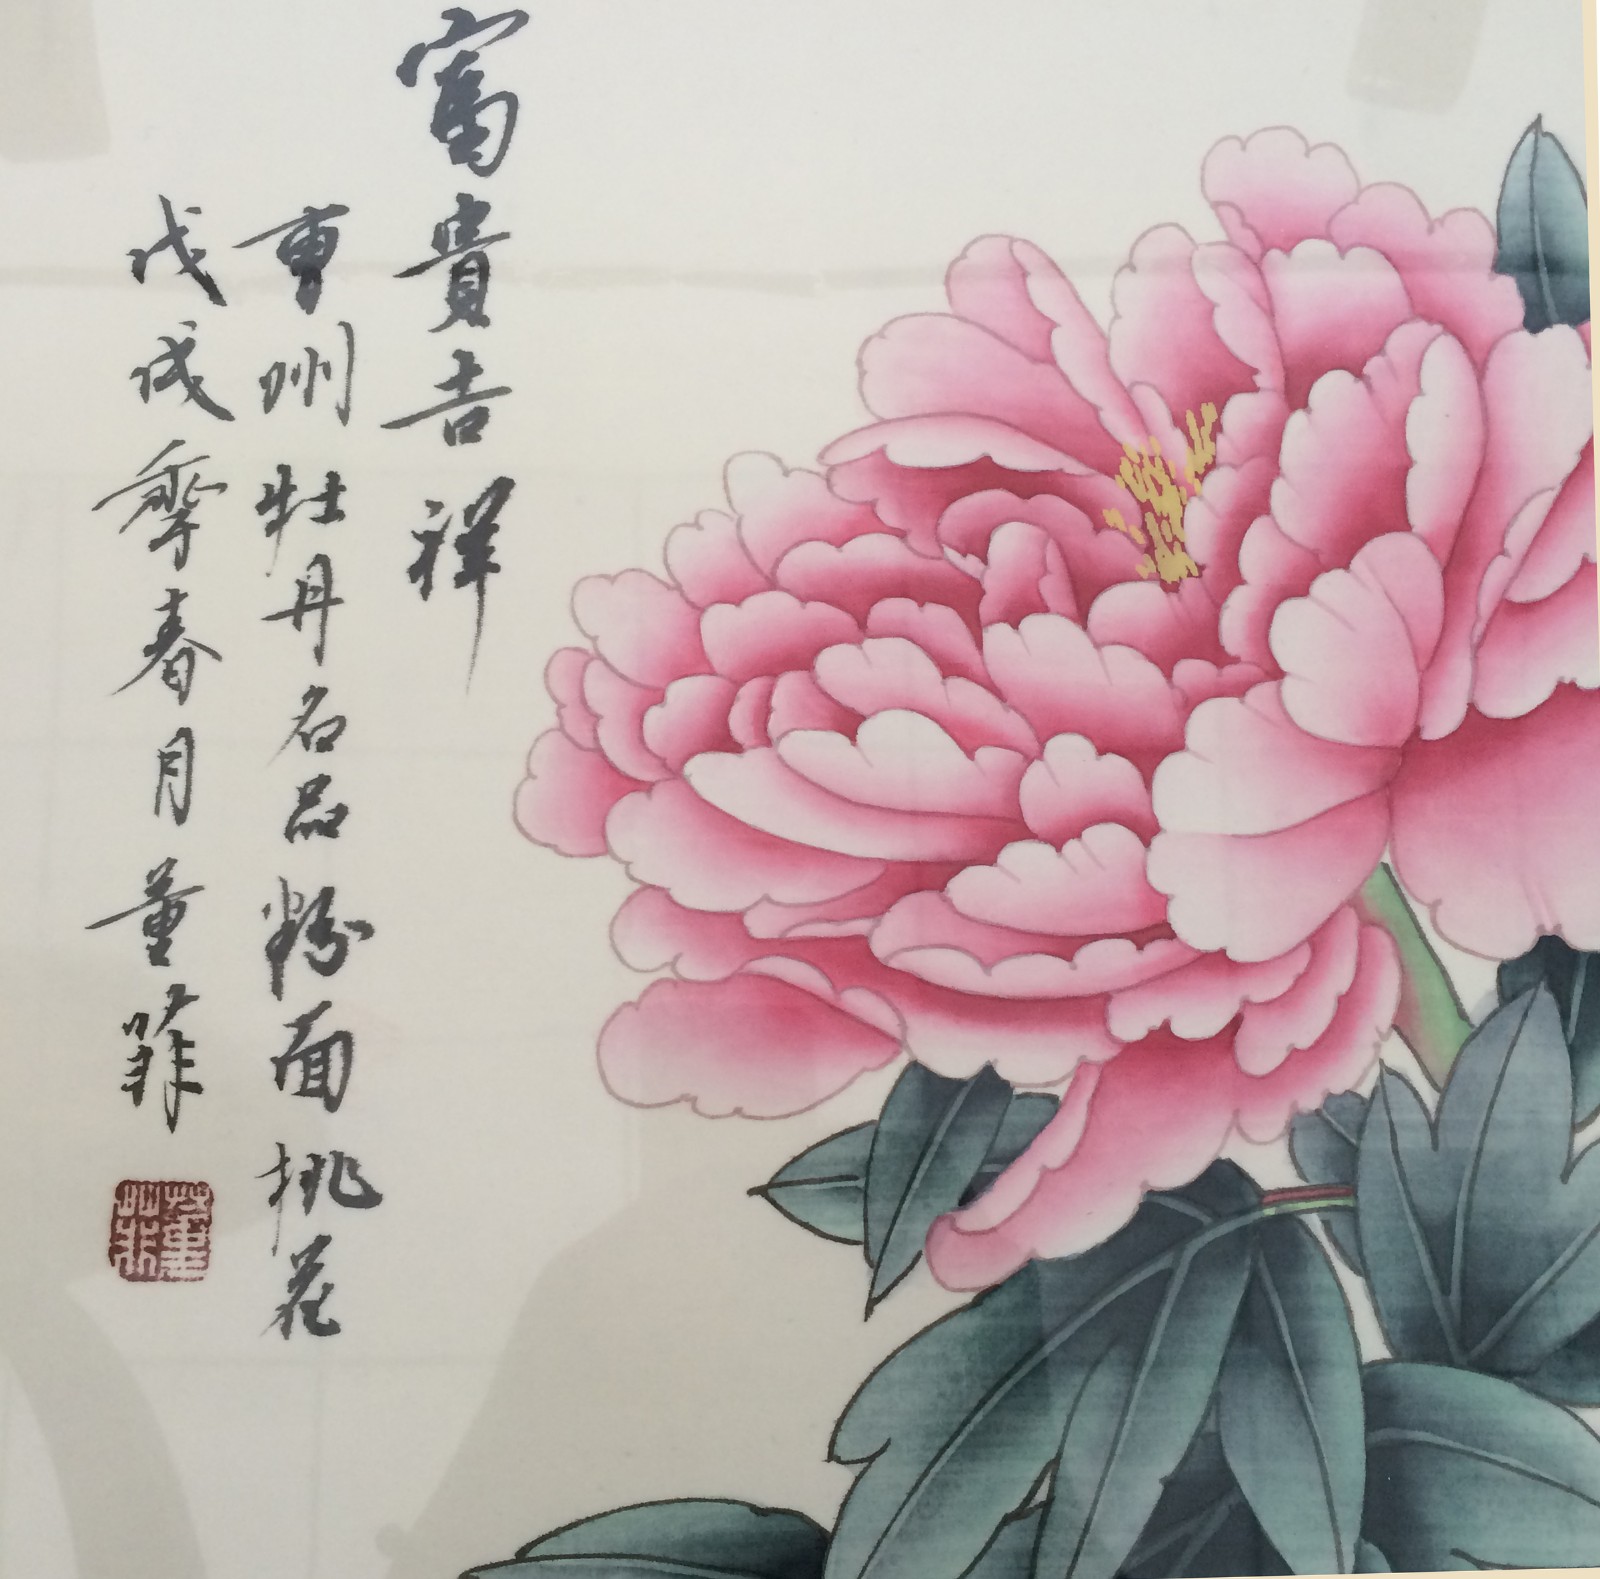 富貴吉祥
曹州牡丹名品粉面桃花
戊戌季春月董菲
董菲